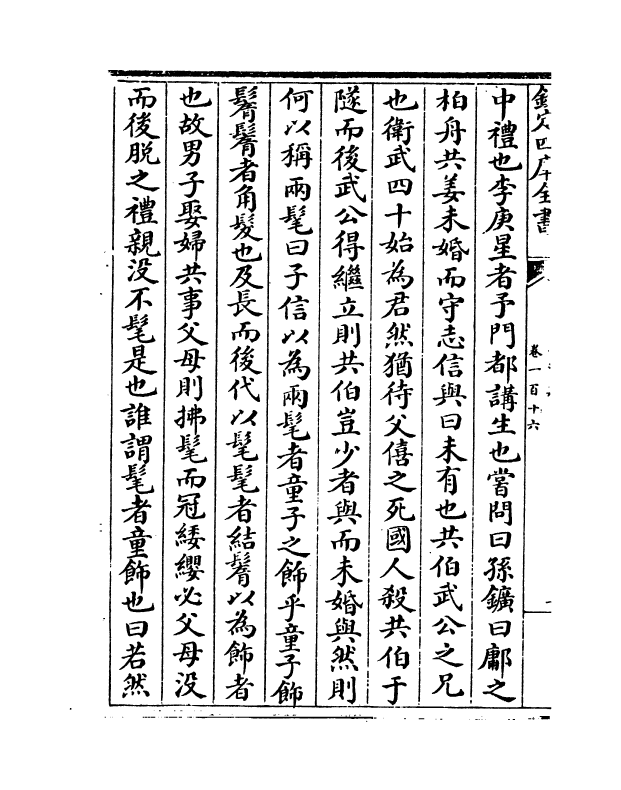 欽定四庫全書
卷一百十六
中禮也李庚星者予門都講生也嘗問曰孫鑛曰鄘之
柏舟共姜未婚而守志信與曰未有也共伯武公之兄
也衛武四十始為君然猶待父僖之死國人殺共伯于
隧而後武公得繼立則共伯豈少者與而未婚與然則
何以稱兩髦曰子信以為兩髦者童子之飾乎童子飾
鬌鬌者角髮也及長而後代以髦髦者結鬌以為飾者
也故男子娶婦共事父母則拂髦而冠緌纓必父母没
而後脱之禮親没不髦是也誰謂髦者童飾也曰若然